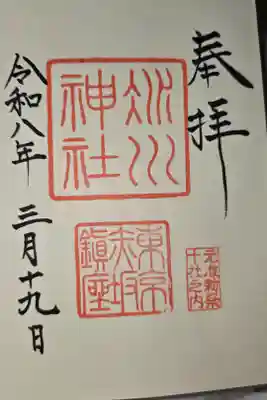 奉拝
元准勅祭
十社之内
氷川
神社
東京
赤坂
鎮座
令和八年 三月十九日